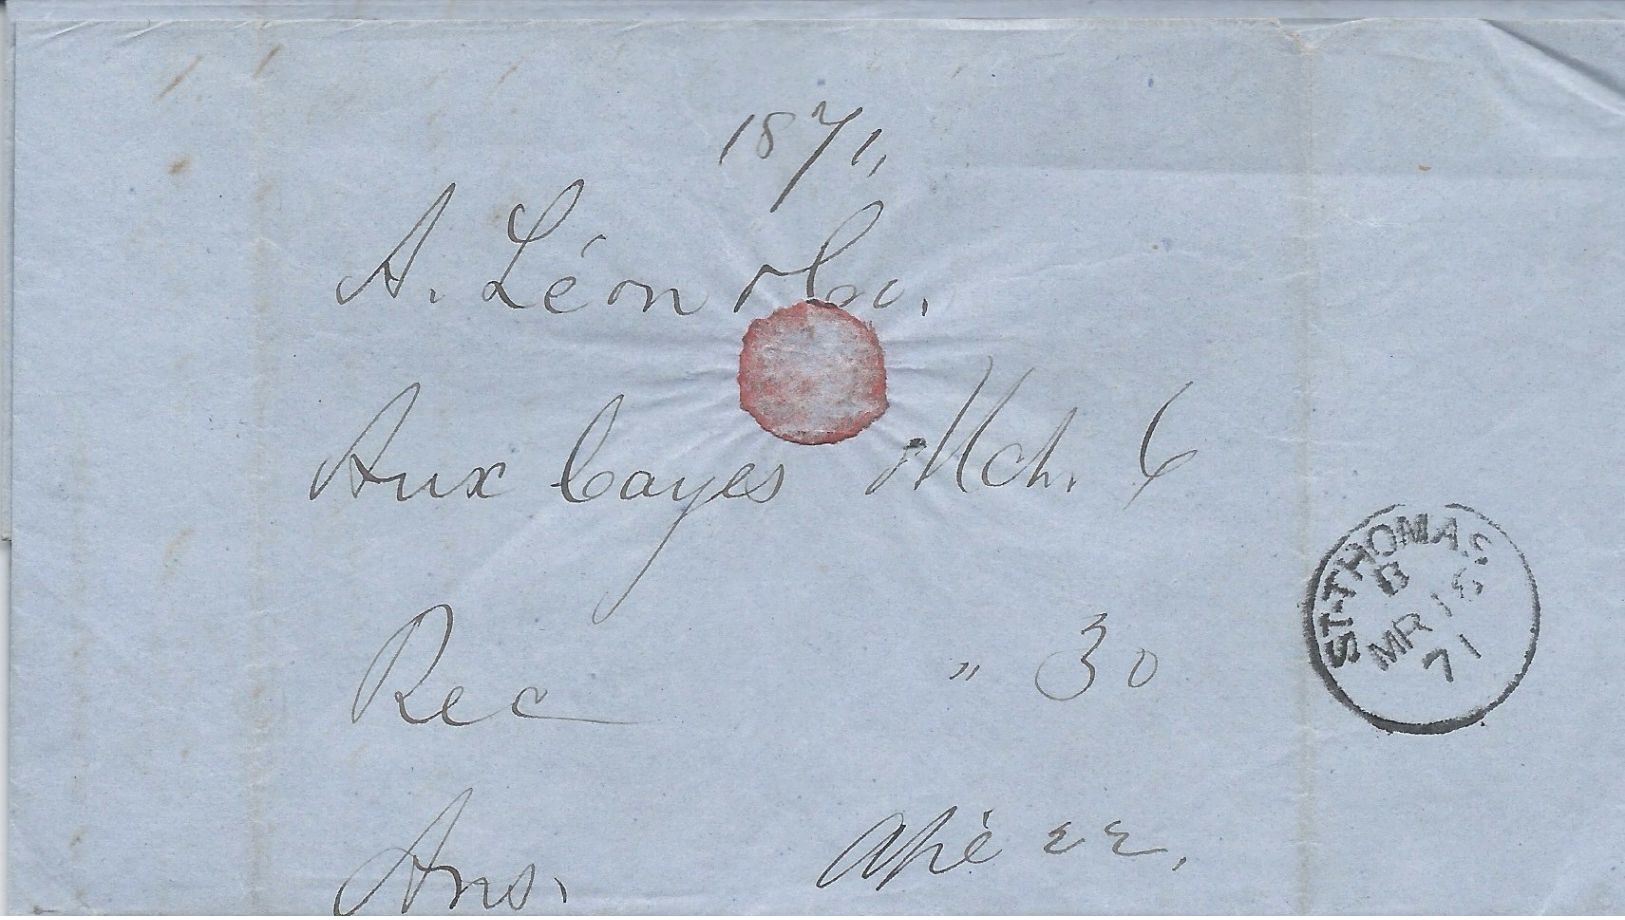 1871,
A. Léon & Co.
Aux Cayes Mch. 6
Rec " 30
Ans.
ST-THOMAS
B
MR 16
71